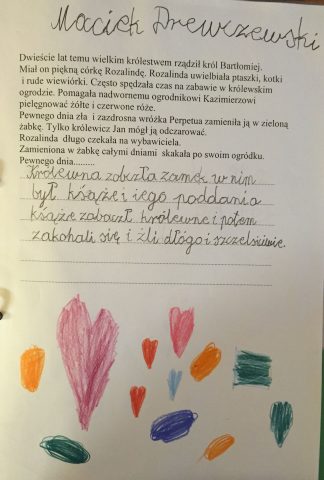 Maciek Drewszewski
Dwieście lat temu wielkim królestwem rządził król Bartłomiej.
Miał on piękną córkę Rozalindę. Rozalinda uwielbiała ptaszki, kotki
i rude wiewiórki. Często spędzała czas na zabawie w królewskim
ogrodzie. Pomagała nadwornemu ogrodnikowi Kazimierzowi
pielęgnować żółte i czerwone róże.
Pewnego dnia zła i zazdrosna wróżka Perpetua zamieniła ją w zieloną
żabkę. Tylko królewicz Jan mógł ją odczarować.
Rozalinda długo czekała na wybawiciela.
Zamieniona w żabkę całymi dniami skakała po swoim ogródku.
Pewnego dnia.........
Królewna zobczła zamek w nim
był ksiąze i iego poddania
ksiąze zobaczł królewne i potem
zakohali się i żli dłógo i szczelsiwie.